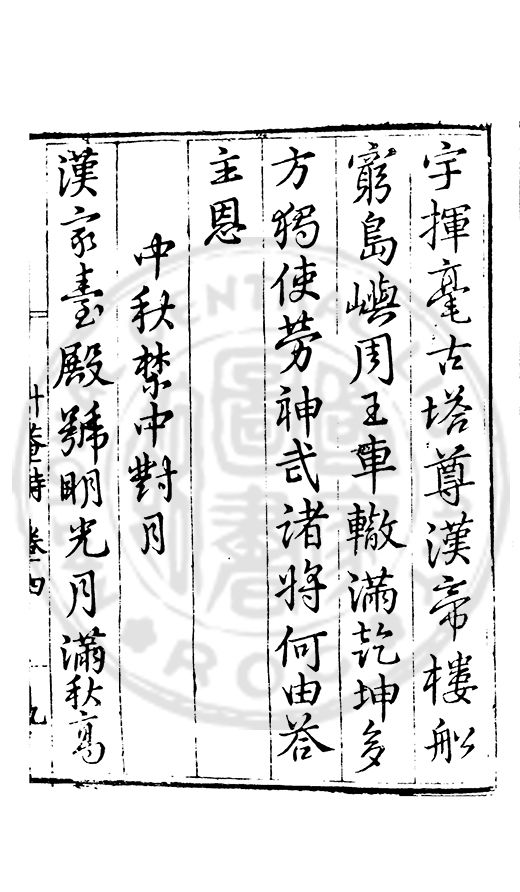 宇揮毫古塔尊漢帝樓船
窮島嶼周王車轍滿乾坤多
方獨使勞神武諸將何由答
主恩
中秋禁中對月
漢家臺殿號明光月滿秋高
詩卷四
九